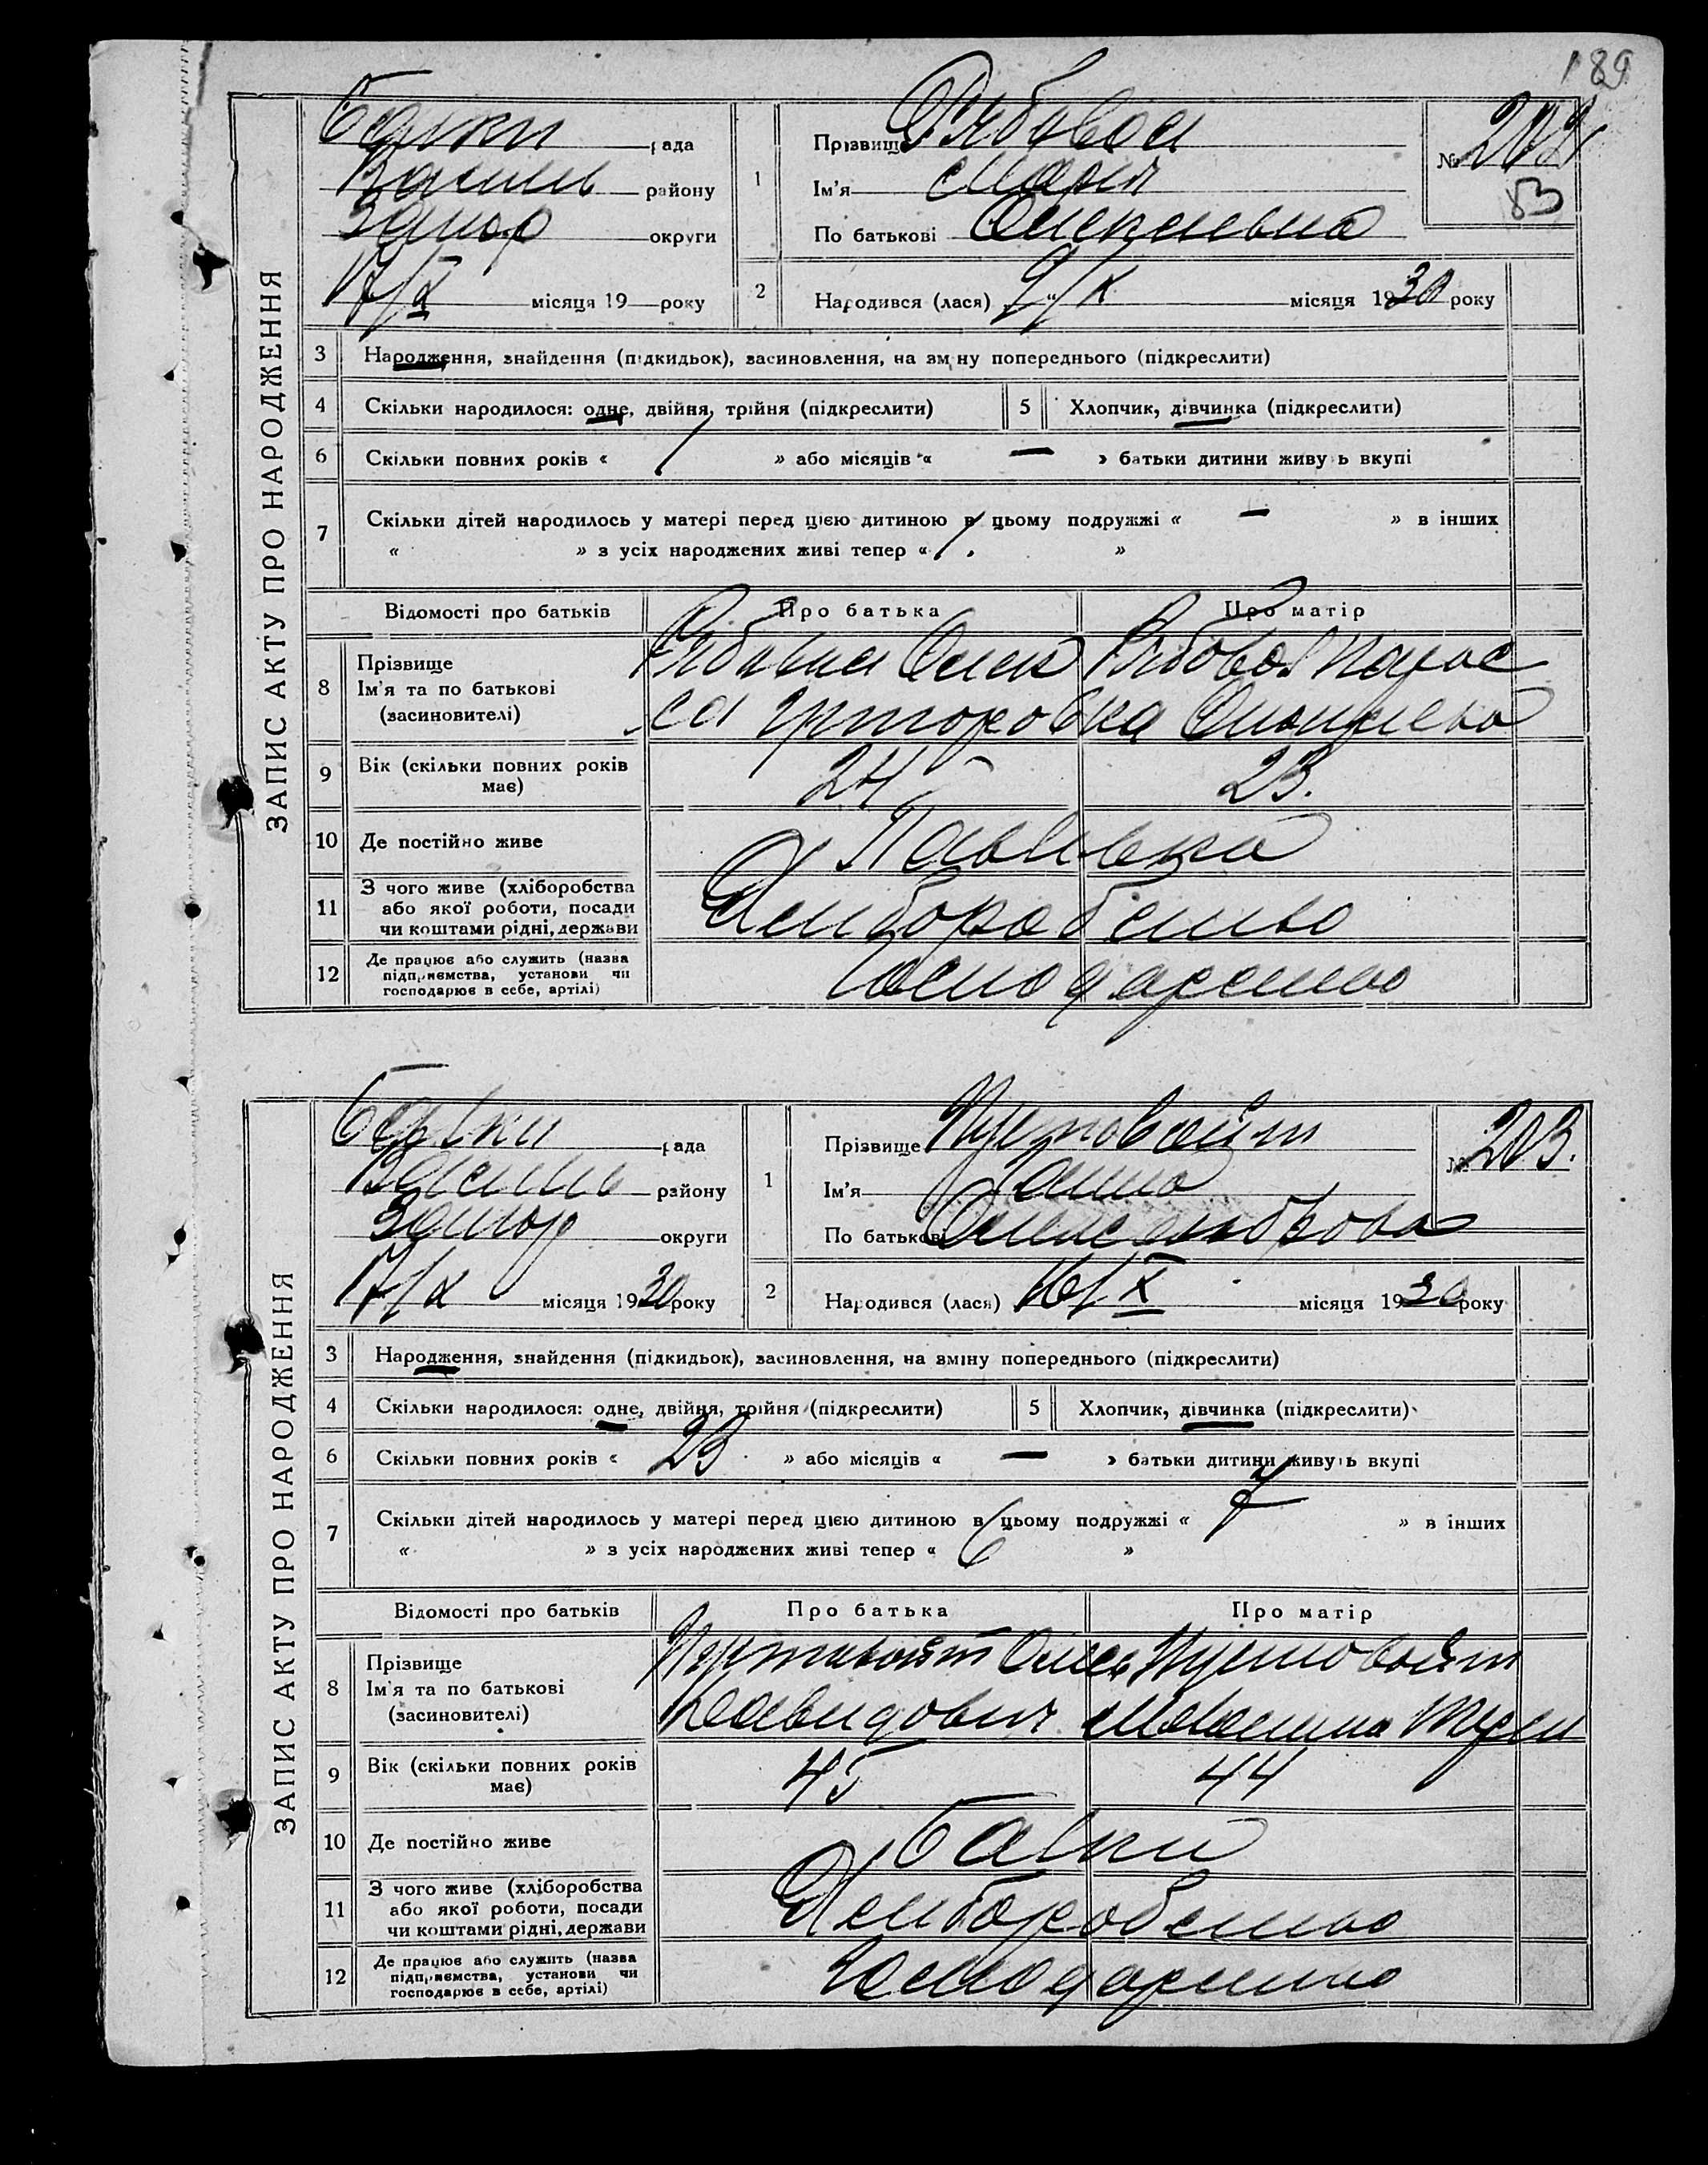 189
ЗАПИС АКТУ ПРО НАРОДЖЕННЯ
Балки рада
Василь району
Запор округи
17/X місяця 19 року
1
Прізвище Рябовол
Ім'я Марія
По батькові Олексіевна
№ 202
83
2
Народився (лася) 9/X місяця 1930 року
3 Народження, знайдення (підкидьок), засиновлення, на зміну попереднього (підкреслити)
4 Скільки народилося: одне, двійня, трійня (підкреслити)
5 Хлопчик, дівчинка (підкреслити)
6 Скільки повних років « 1 » або місяців « — » батьки дитини живуть вкупі
7 Скільки дітей народилось у матері перед цією дитиною в цьому подружжі « — » в інших
« » з усіх народжених живі тепер « »
Відомості про батьків Про батька Про матір
8 Прізвище
Ім'я та по батькові
(засновителі)
Рябовол Олек Рябовол Парас
са Онопріева
9 Вік (скільки повних років має) 24 23.
10 Де постійно живе Павлівка
11 З чого живе (хліборобства
або якої роботи, посади
чи коштами рідні, держави
Хліборобство
12 Де працює або служить (назва
підприємства, установи чи
господарює в себе, артілі)
Господарство
ЗАПИС АКТУ ПРО НАРОДЖЕННЯ
Балки рада
Василь району
Запор округи
17/X місяця 1930 року
1
Прізвище Пустовойт
Ім'я Ганна
По батькові Олександрова
№ 203.
2
Народився (лася) 16/X місяця 1930 року
3 Народження, знайдення (підкидьок), засиновлення, на зміну попереднього (підкреслити)
4 Скільки народилося: одне, двійня, трійня (підкреслити)
5 Хлопчик, дівчинка (підкреслити)
6 Скільки повних років « 23 » або місяців « — » батьки дитини живуть вкупі
7 Скільки дітей народилось у матері перед цією дитиною в цьому подружжі « 7 » в інших
« » з усіх народжених живі тепер « 6 »
Відомості про батьків Про батька Про матір
8 Прізвище
Ім'я та по батькові
(засновителі)
Пустовойт Олек Пустовойт
Давидович
9 Вік (скільки повних років має) 45 44
10 Де постійно живе Балки
11 З чого живе (хліборобства
або якої роботи, посади
чи коштами рідні, держави
Хліборобство
12 Де працює або служить (назва
підприємства, установи чи
господарює в себе, артілі)
Господарство